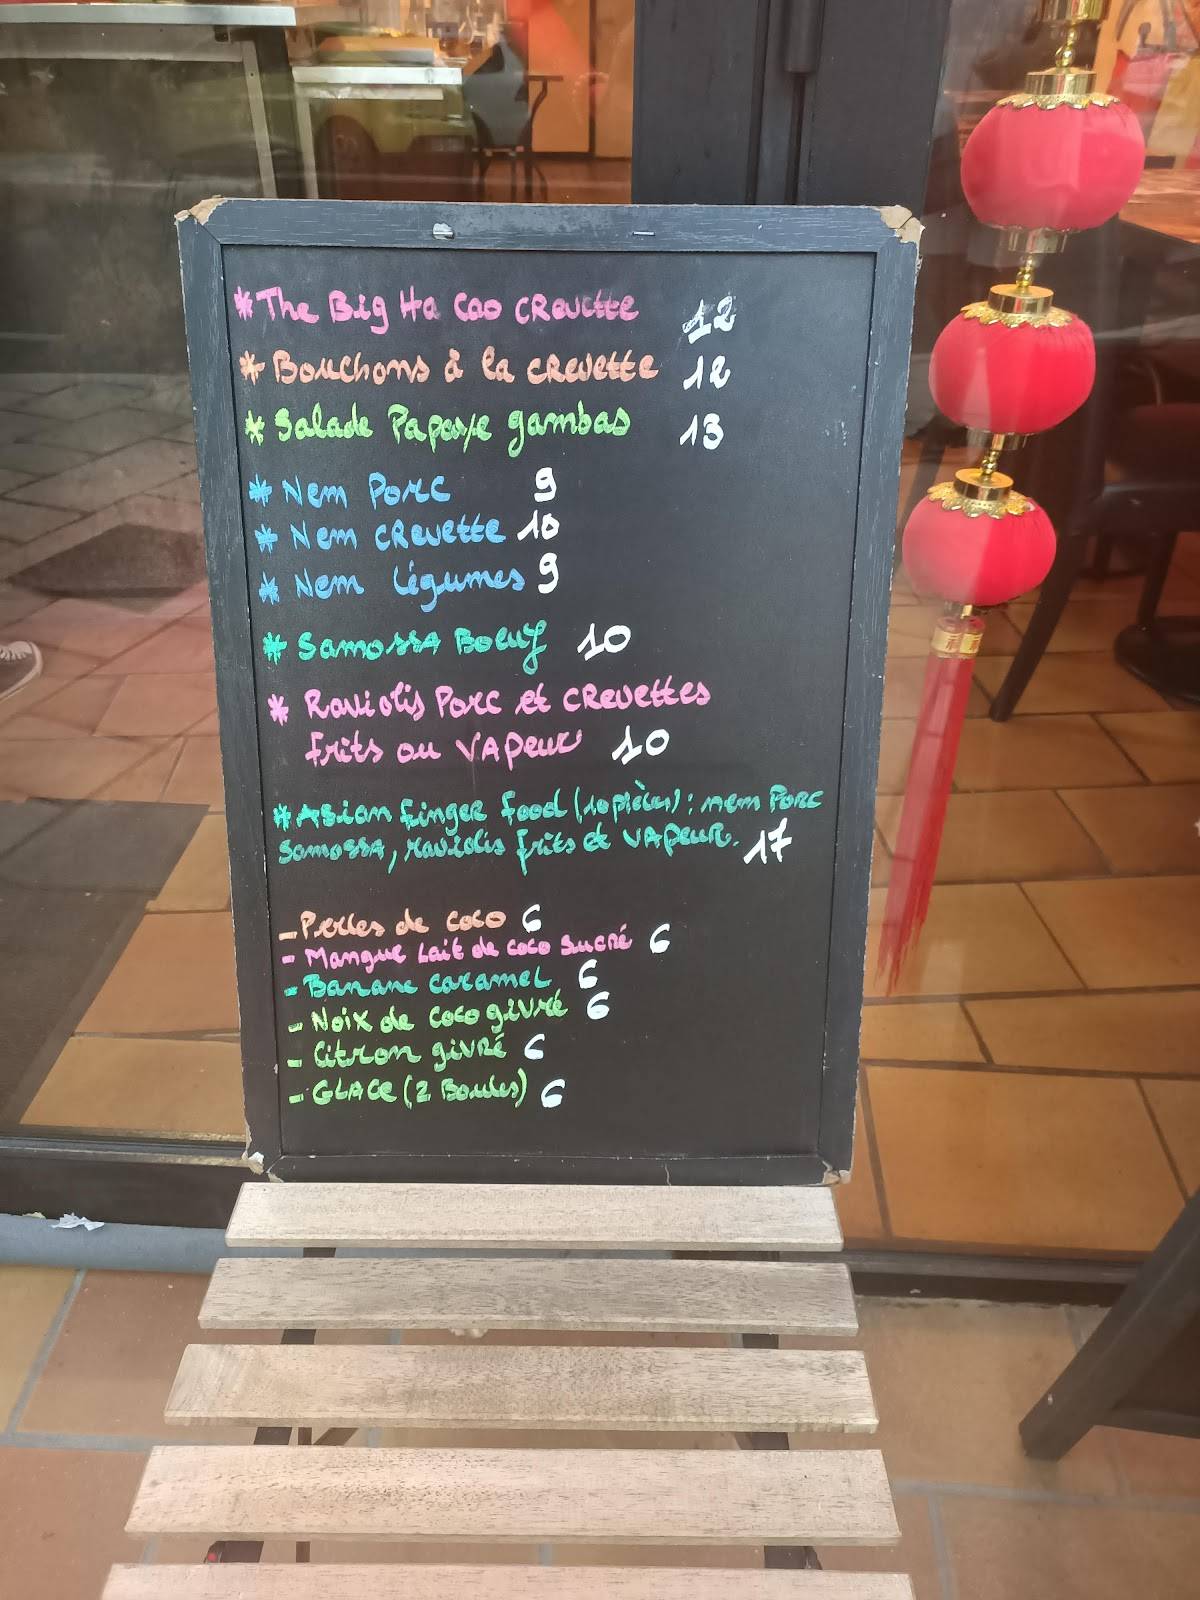 *The Big Ha Cao CREVETTE 12
* Bouchons à la CREVETTE 12
* Salade Papaye gambas 13
* Nem PORC 9
* Nem CREVETTE 10
* Nem Légumes 9
* SAMOSSA BOEUf 10
* Raviolis PORC et CREVETTES
frits ou VAPEUR 10
*ASIAN finger food (10 pièces) : nem PORC
SAMOSSA, raviolis frits et VAPEUR. 17
- Perles de coco 6
- Mangue Lait de coco sucré 6
- Banane caramel 6
- Noix de coco givré 6
- Citron givré 6
- GLACE (2 Boules) 6